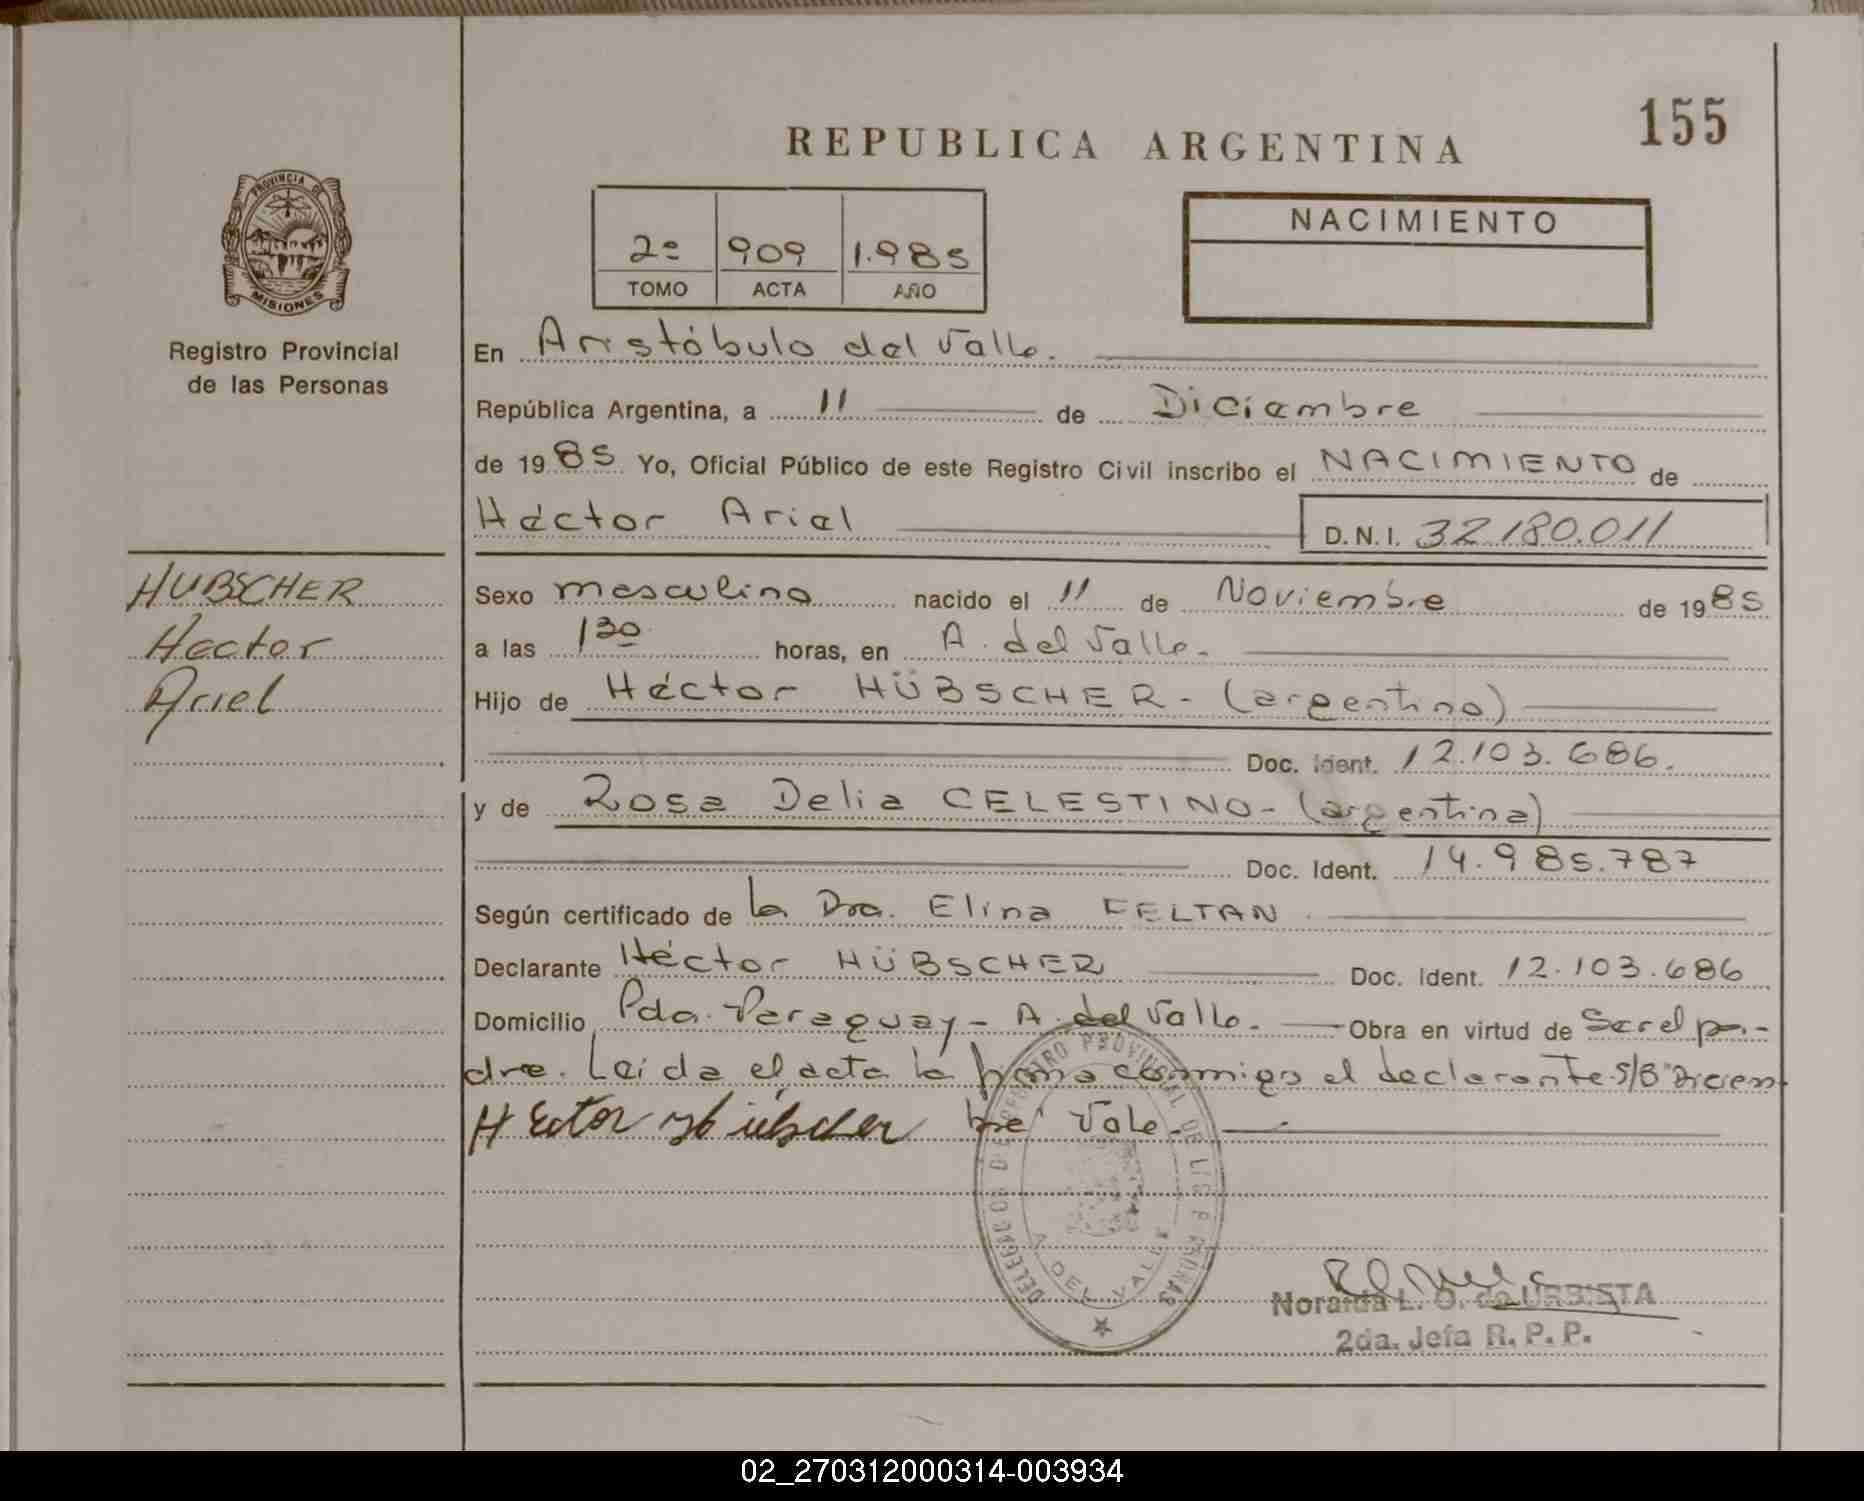 155
REPUBLICA ARGENTINA
PROVINCIA DE
MISIONES
Registro Provincial
de las Personas
2º 909 1.985
TOMO ACTA AÑO
NACIMIENTO
En Aristóbulo del Valle.
República Argentina, a 11 de Diciembre
de 1985 Yo, Oficial Público de este Registro Civil inscribo el NACIMIENTO de
Héctor Ariel D.N.I. 32.180.011
HUBSCHER
Hector
Ariel
Sexo masculino nacido el 11 de Noviembre de 1985
a las 130 horas, en A. del Valle.
Hijo de Héctor HÜBSCHER - (argentino)
Doc. Ident. 12.103.686.
y de Rosa Delia CELESTINO - (argentina)
Doc. Ident. 14.985.787
Según certificado de la Dra. Elina FELTAN.
Declarante Héctor HÜBSCHER Doc. Ident. 12.103.686
Domicilio Pda. Paraguay - A. del Valle. Obra en virtud de Ser el pa-
dre. Leída el acta la firma conmigo el declarante. S/B "Diciem-
Héctor Hübscher bre" Vale.
DE REGISTRO PROVINCIAL DE LAS PERSONAS
A. DEL VALLE
Noraida L. O. de URBISTA
2da. Jefa R. P. P.
02_270312000314-003934